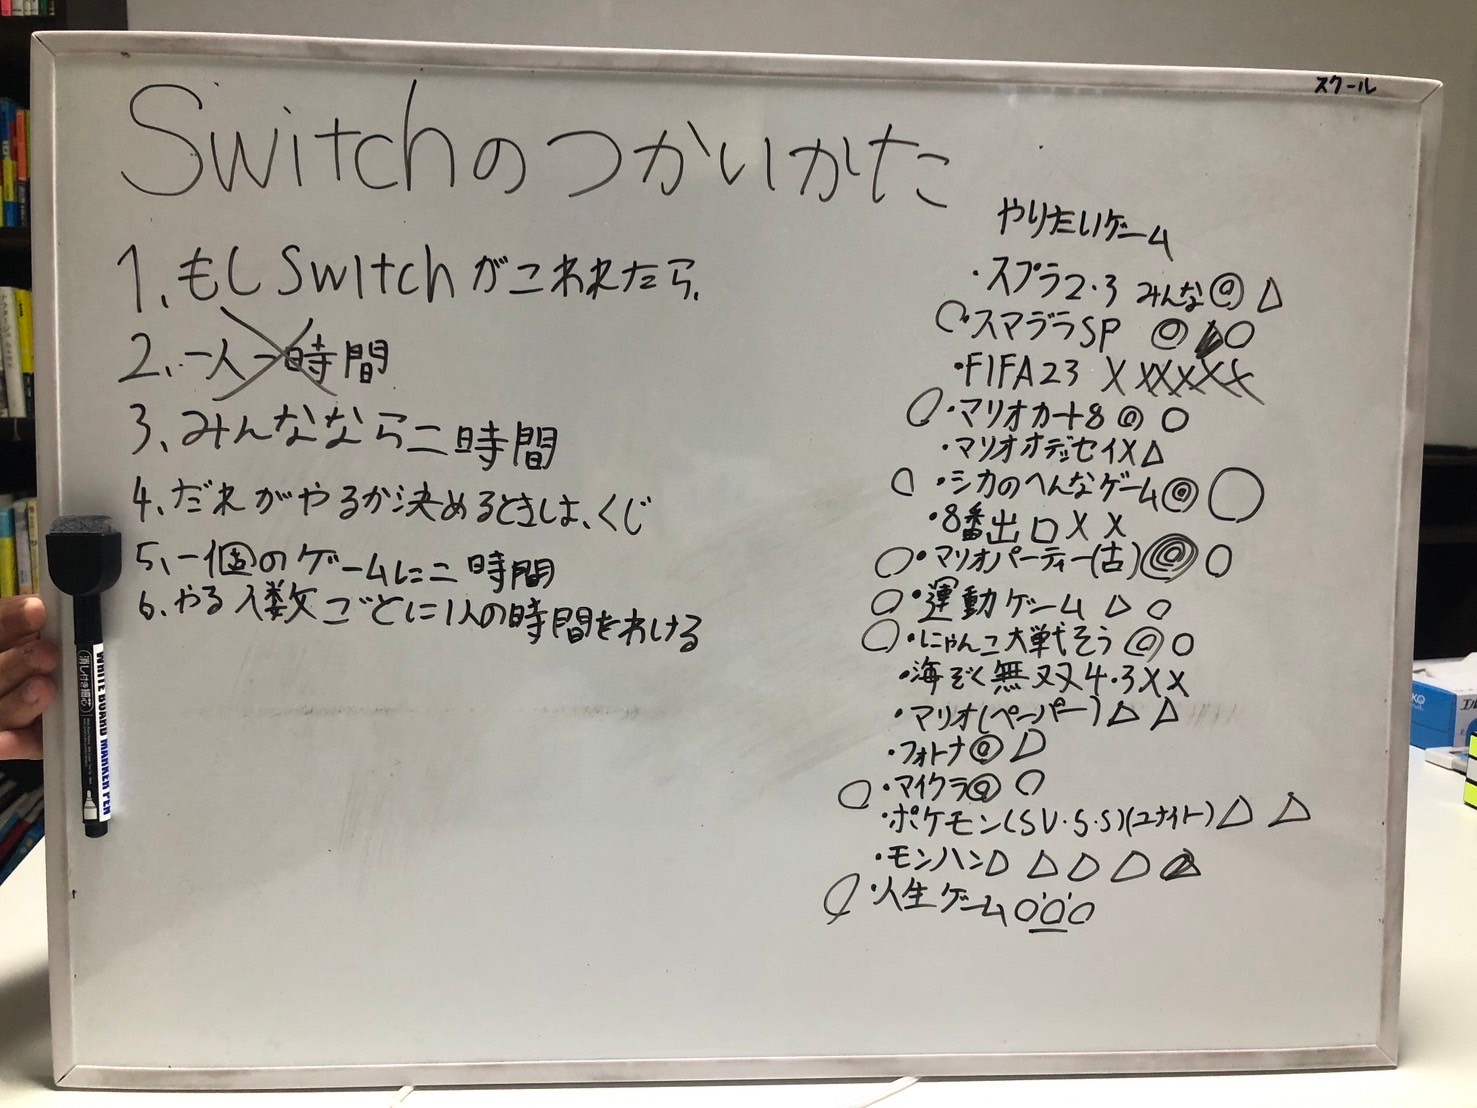 スクール
Switchのつかいかた
1、もしSwitchがこわれたら、
2、一人一時間
3、みんななら二時間
4、だれがやるか決めるときは、くじ
5、一個のゲームに二時間
6、やる人数ごとに1人の時間をわける
やりたいゲーム
・スプラ2・3 みんな◎△
○・スマブラSP ◎ ○
・FIFA23 XXXXXX
○・マリオカート8◎○
・マリオオデッセイX△
○・シカのへんなゲーム◎○
・8番出口XX
○・マリオパーティー(古)◎○
○・運動ゲーム△○
○・にゃんこ大戦そう◎○
・海ぞく無双4・3XX
・マリオ(ペーパー)△△
・フォトナ◎△
○・マイクラ◎○
・ポケモン(SV・S・S)(ユナイト)△△
・モンハン△△△△△
○・人生ゲーム○○○
WHITE BOARD MARKER PEN